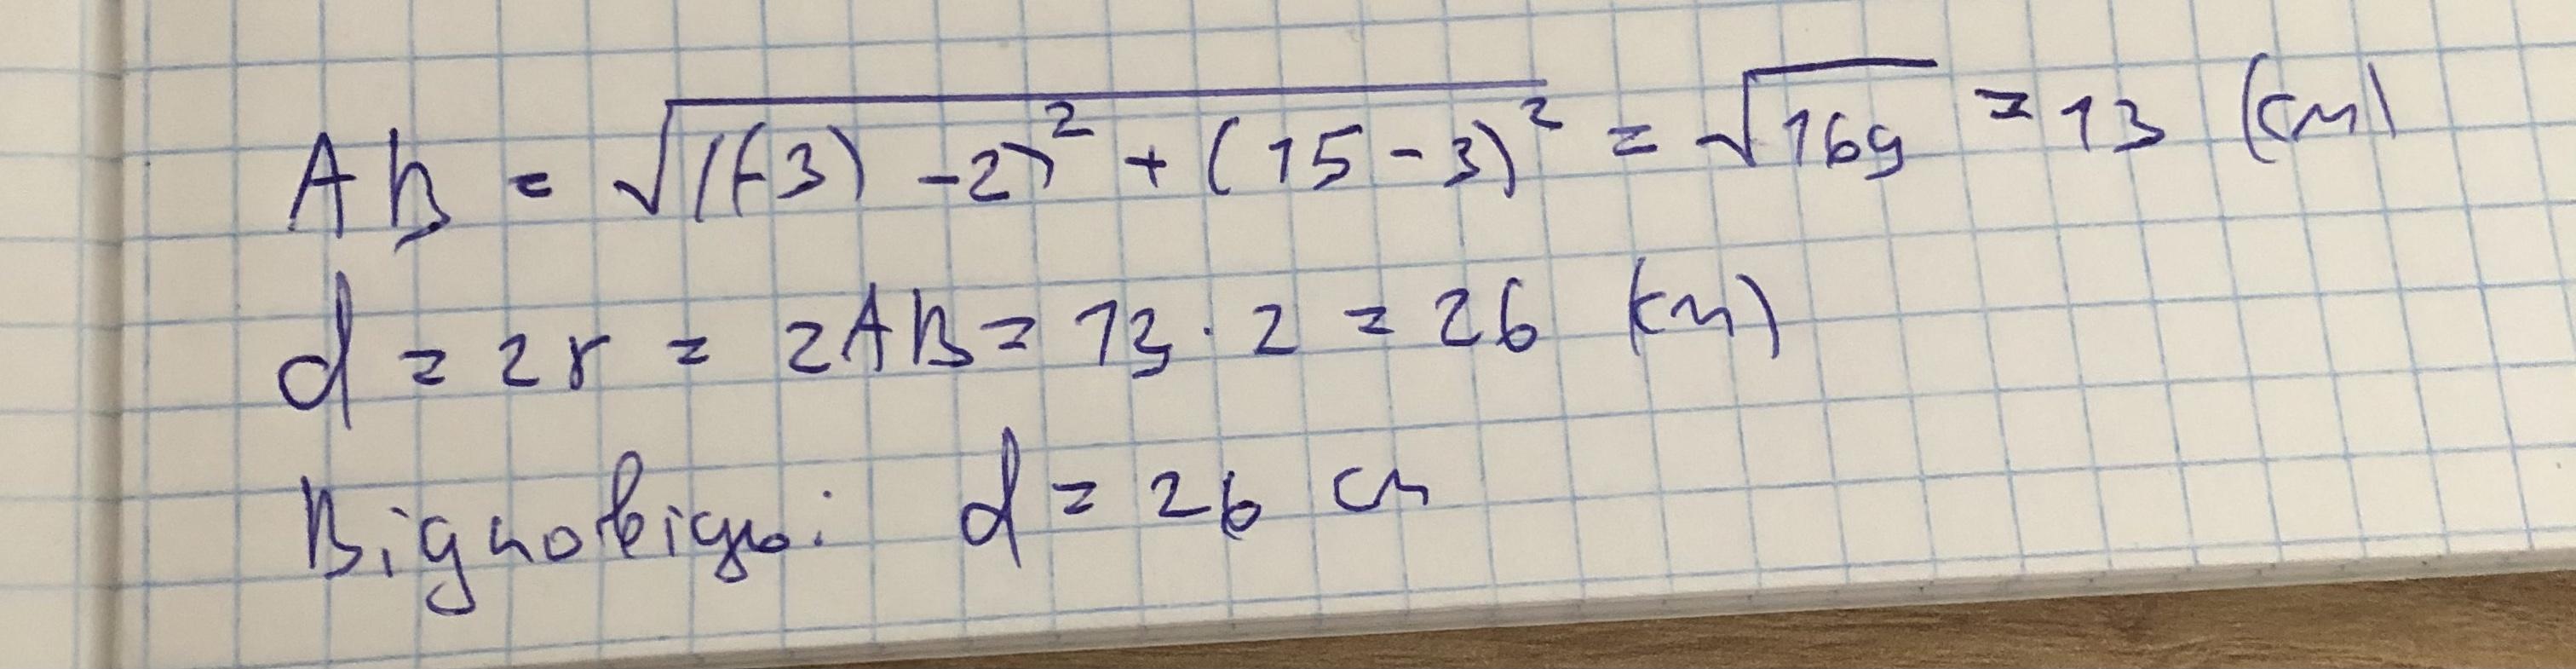 AB = √((-3) - 2)² + (15 - 3)² = √169 = 13 (см)
d = 2r = 2AB = 13 · 2 = 26 (см)
Відповідь: d = 26 см